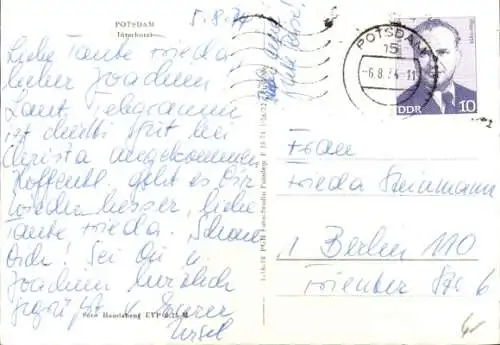 POTSDAM
5.8.74
Liebe Tante Frieda
lieber Joachim
Laut Telegramm
ist Mutti gut bei
Christa angekommen
Hoffentl. geht es Dir
wieder besser, liebe
Tante Frieda. Schone
Dich! Sei Du u.
Joachim herzlich
gegrüßt v. Eurer
Ursel
POTSDAM
15
-6.8.74-11
DDR
10
Frau
Frieda Steinmann
1 Berlin 110
Trienter Str 6
Foto Handelsorg EVP 0,25 M